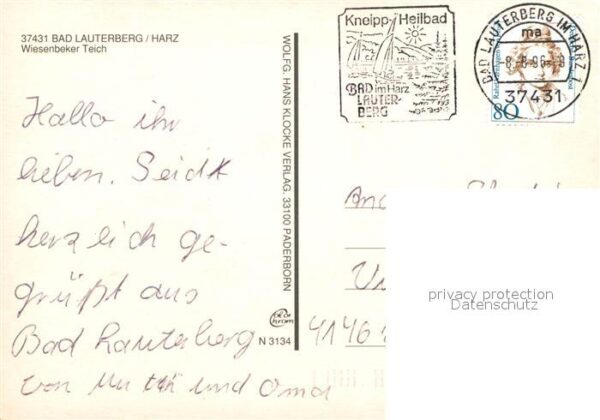 37431 BAD LAUTERBERG / HARZ
Wiesenbeker Teich
Hallo ihr
lieben. Seidt
herzlich ge-
grüßt aus
Bad Lauterberg
von und Oma
WOLFG. HANS KLOCKE VERLAG. 33100 PADERBORN
N 3134
Kneipp-Heilbad
BAD im Harz
LAUTER-
BERG
BAD LAUTERBERG IM HARZ 1
ma
-8.-8.96-8
37431
80
privacy protection
Datenschutz